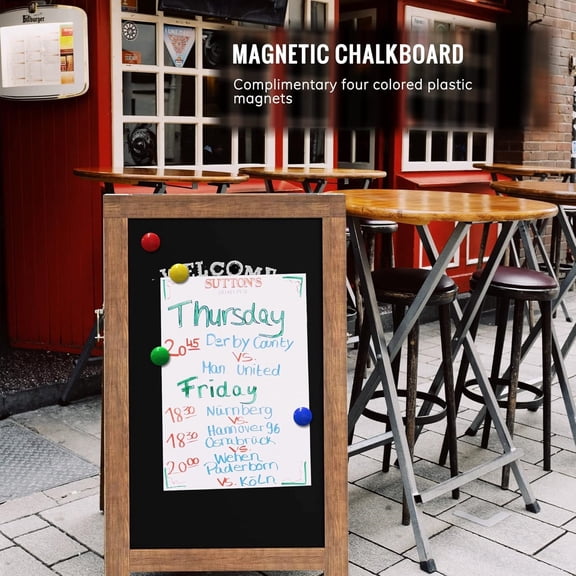 Bitburger
MAGNETIC CHALKBOARD
Complimentary four colored plastic
magnets
WELCOME
SUTTON'S
Thursday
20 45 Derby County
VS.
Man United
Friday
18 30 Nürnberg
VS.
Hannover 96
18 30 Osnabrück
VS.
Wehen
20 00 Paderborn
VS. KÖLN